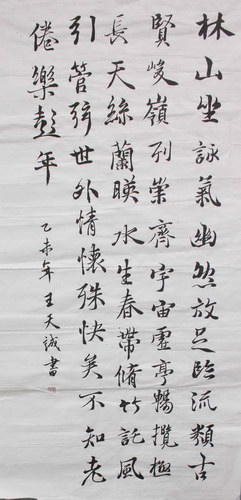 林山坐詠氣幽然放足臨流類古
賢峻嶺列崇齊宇宙虛亭暢攬極
長天絲蘭暎水生春帶脩竹託風
引管弦世外情懷殊快矣不知老
倦樂彭年
乙未年王天誠書